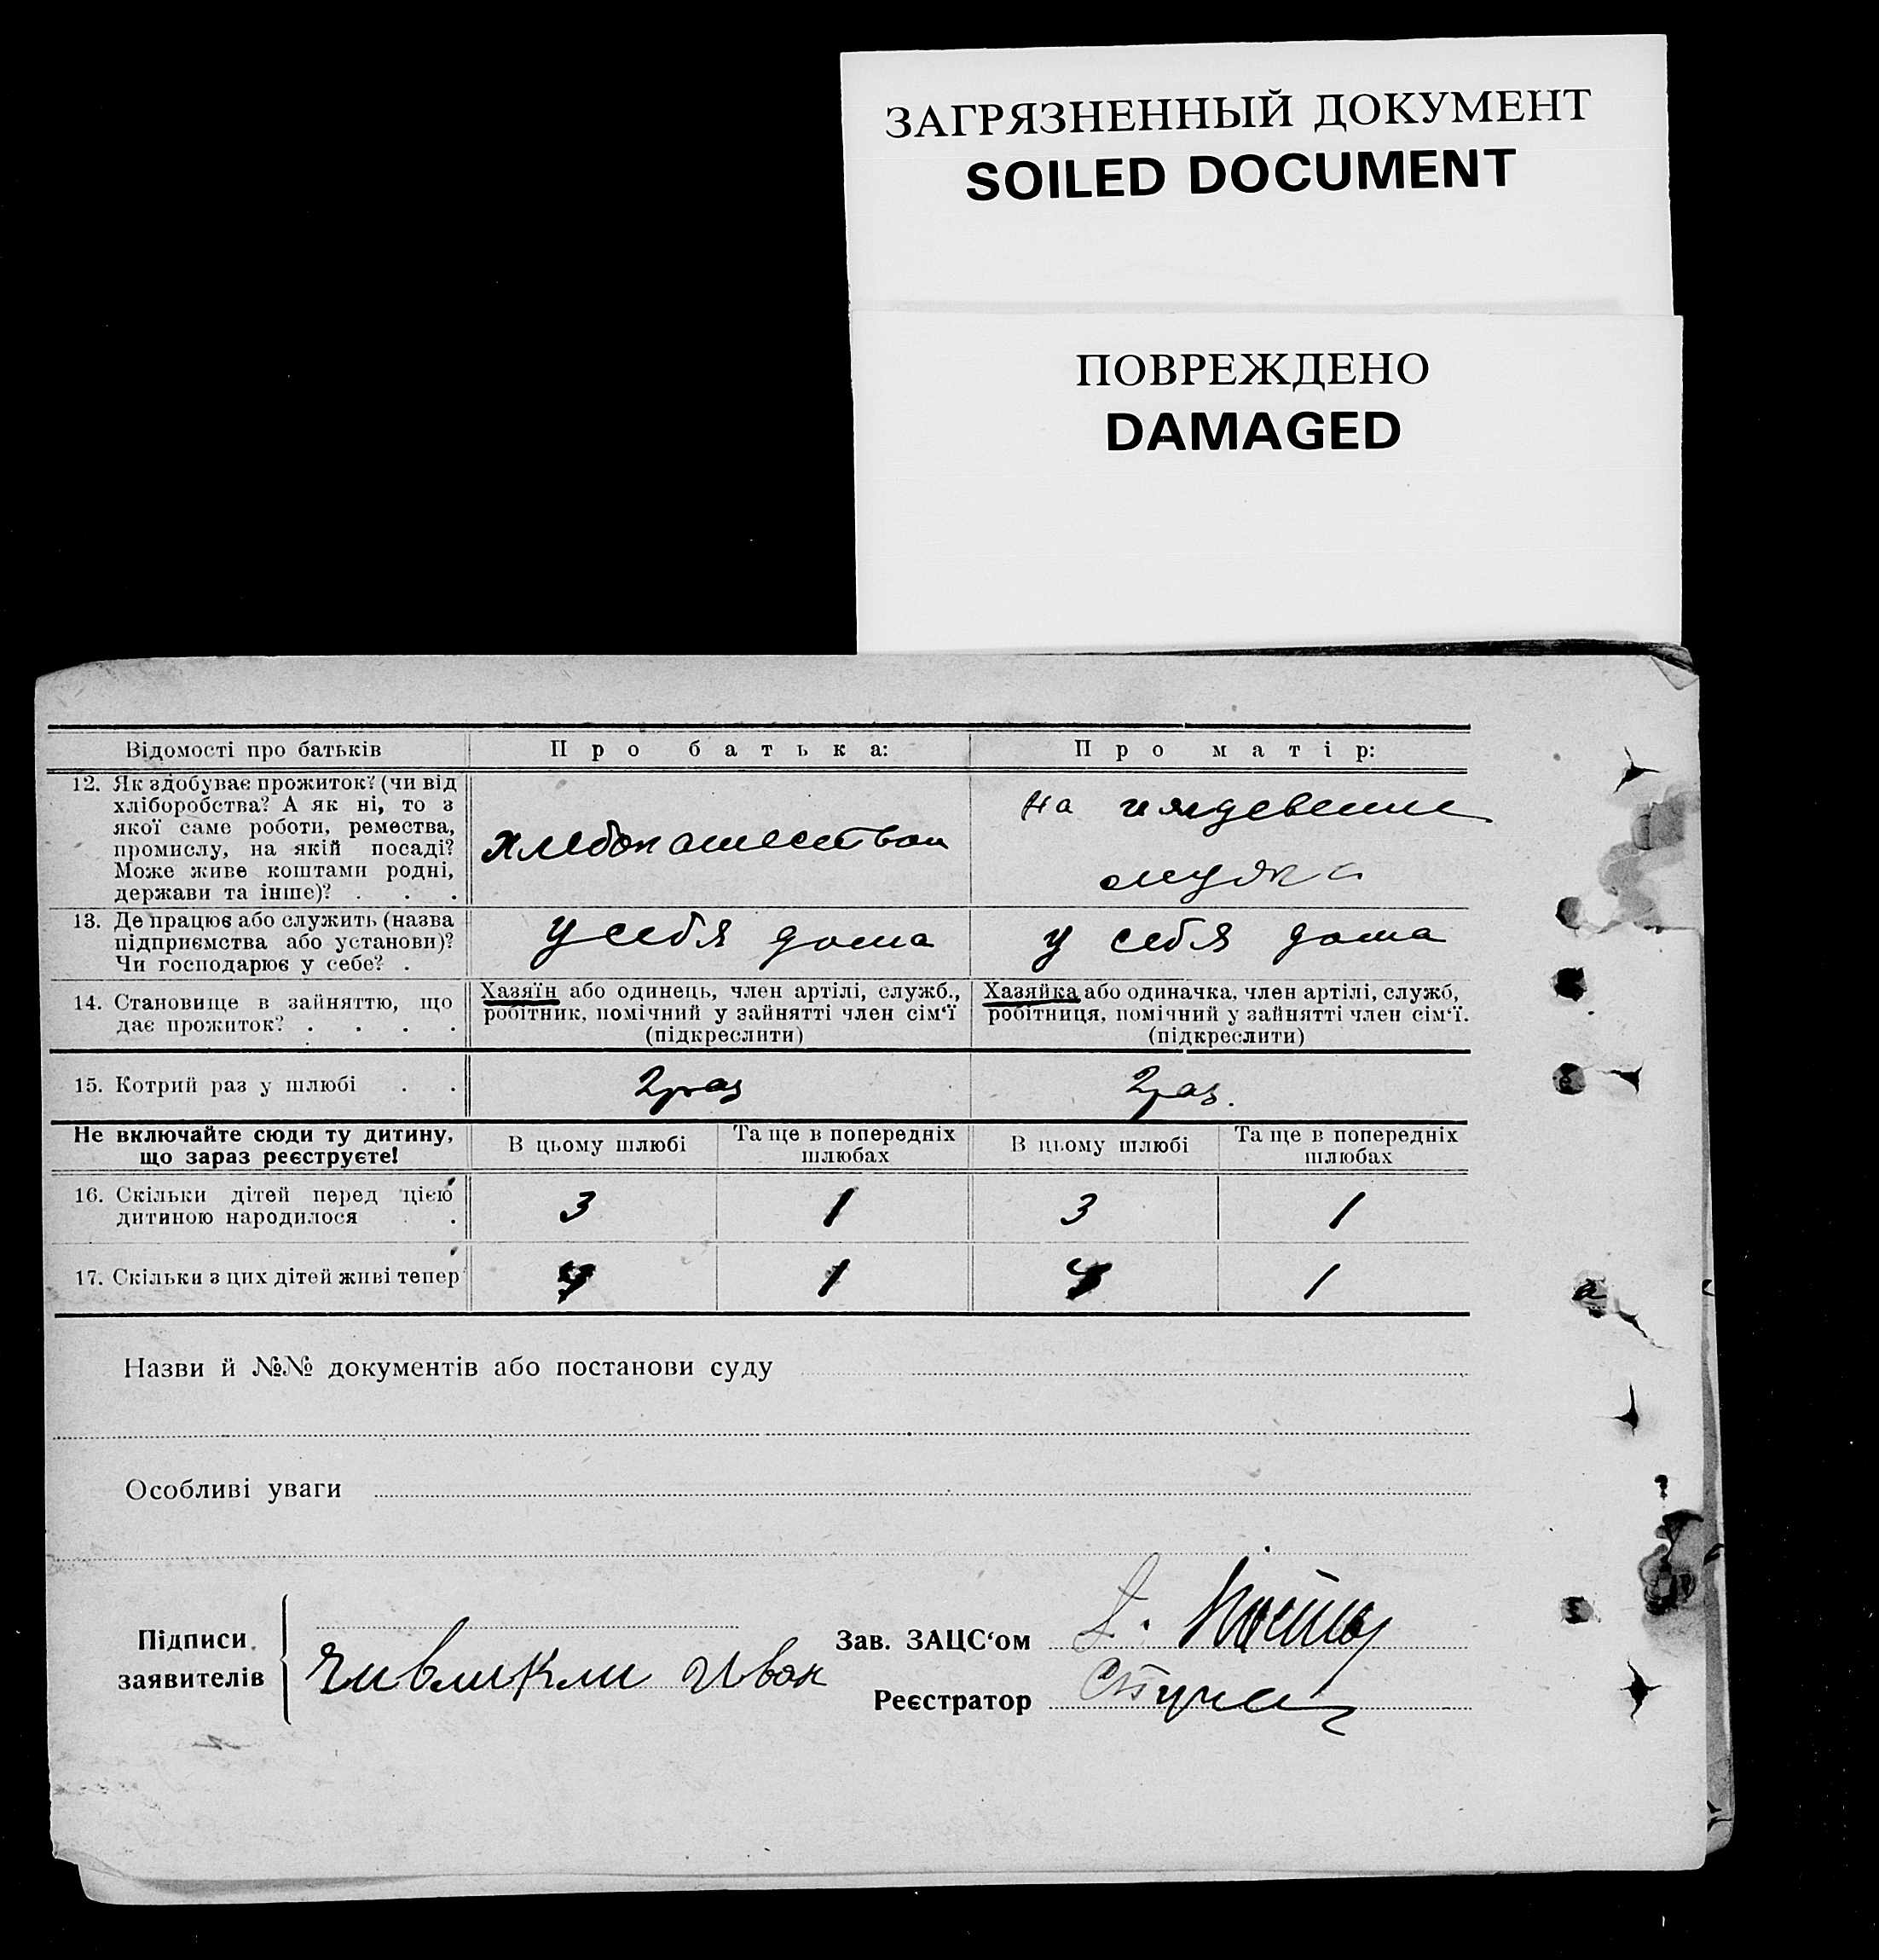 ЗАГРЯЗНЕННЫЙ ДОКУМЕНТ
SOILED DOCUMENT
ПОВРЕЖДЕНО
DAMAGED
Відомості про батьків
Про батька:
Про матір:
12. Як здобуває прожиток? (чи від
хліборобства? А як ні, то з
якої саме роботи, ремества,
промислу, на якій посаді?
Може живе коштами родні,
держави та інше)? . . .
хлебопашеством
на иждевение
мужа
13. Де працює або служить (назва
підприємства або установи)?
Чи господарює у себе? .
у себя дома
у себя дома
14. Становище в зайняттю, що
дає прожиток? . . . .
Хазяїн або одинець, член артілі, служб.,
робітник, помічний у зайнятті член сім'ї
(підкреслити)
Хазяйка або одиначка, член артілі, служб,
робітниця, помічний у зайнятті член сім'ї.
(підкреслити)
15. Котрий раз у шлюбі . .
2 раз
2 раз.
Не включайте сюди ту дитину,
що зараз реєструєте!
В цьому шлюбі
Та ще в попередніх
шлюбах
В цьому шлюбі
Та ще в попередніх
шлюбах
16. Скільки дітей перед цією
дитиною народилося .
3
1
3
1
17. Скільки з цих дітей живі тепер
1
1
Назви й №№ документів або постанови суду
Особливі уваги
Підписи
заявителів
Иван
Зав. ЗАЦС'ом
Реєстратор